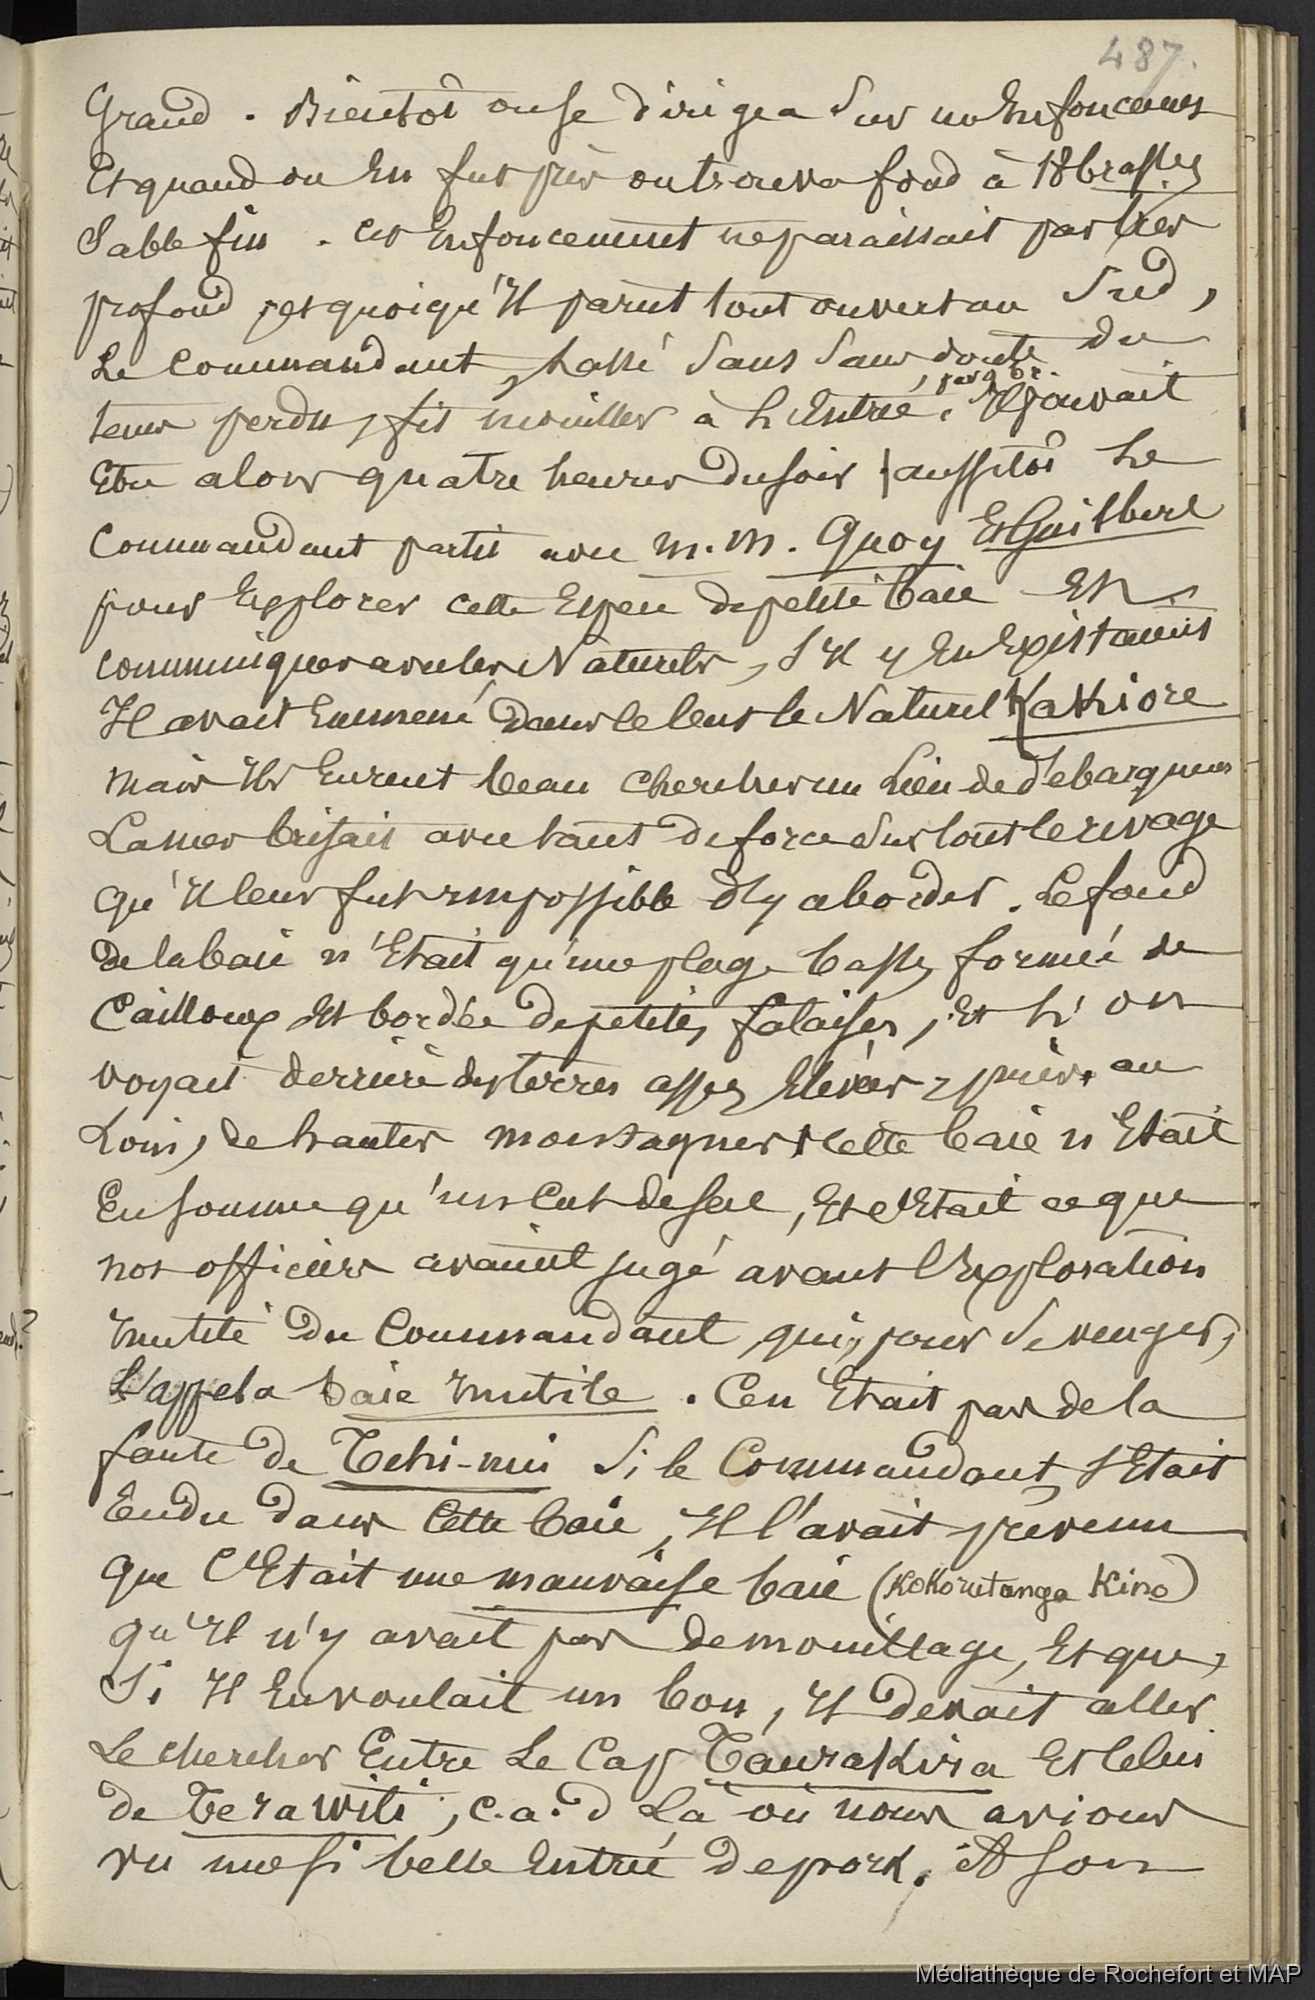 487.
Grand . Bientôt on se dirigea sur un Enfoncement
Et quand on En fut près on trouva fond à 18 brasses
Sable fin . Cet Enfoncement ne paraissait pas très
profond , et quoiqu'Il parut tout ouvert au Sud ,
Le Commandant , lassé sans sans doute du
tems perdu , fit mouiller à l'Entrée , par 9 br. Il pouvait
Etre alors quatre heures du soir | aussitôt Le
Commandant partit avec M.M. Quoy Et Guilbert
pour Explorer cette Espece de petite baie Et
communiquer avec les Naturels , s'Il y En Existaient
Il avait Emmené dans le leur le Naturel Kakiore
Mais Ils Eurent beau chercher un Lieu de débarquem
La mer brisait avec tant de force sur tout le rivage
qu'Il leur fut impossible d'y aborder . Le fond
de la baie n'Etait qu'une plage basse formée de
Cailloux Et bordée de petites falaises , Et l'on
voyait derrière des terres assez Elevées , puis au
Loin , de hautes montagnes Cette baie n'Etait
En somme qu'un Cul de sac , Et c'Etait ce que
nos officiers avaient jugé avant l'Exploration
Inutile du Commandant , qui , pour se venger ,
L'appela baie Inutile . Ce n'Etait pas de la
faute de Tehi-nui Si le Commandant s'Etait
Rendu dans Cette baie , Il l'avait prévenu
que C'Etait une mauvaise baie (Kokorutanga Kino)
qu'Il n'y avait pas de mouillage , Et que ,
Si Il En voulait un bon , Il devait aller
Le chercher Entre Le Cap Tourakira Et Celui
de Terawiti , c.a.d Là où nous avions
vu une si belle Entrée de port . A son
Médiathèque de Rochefort et MAP